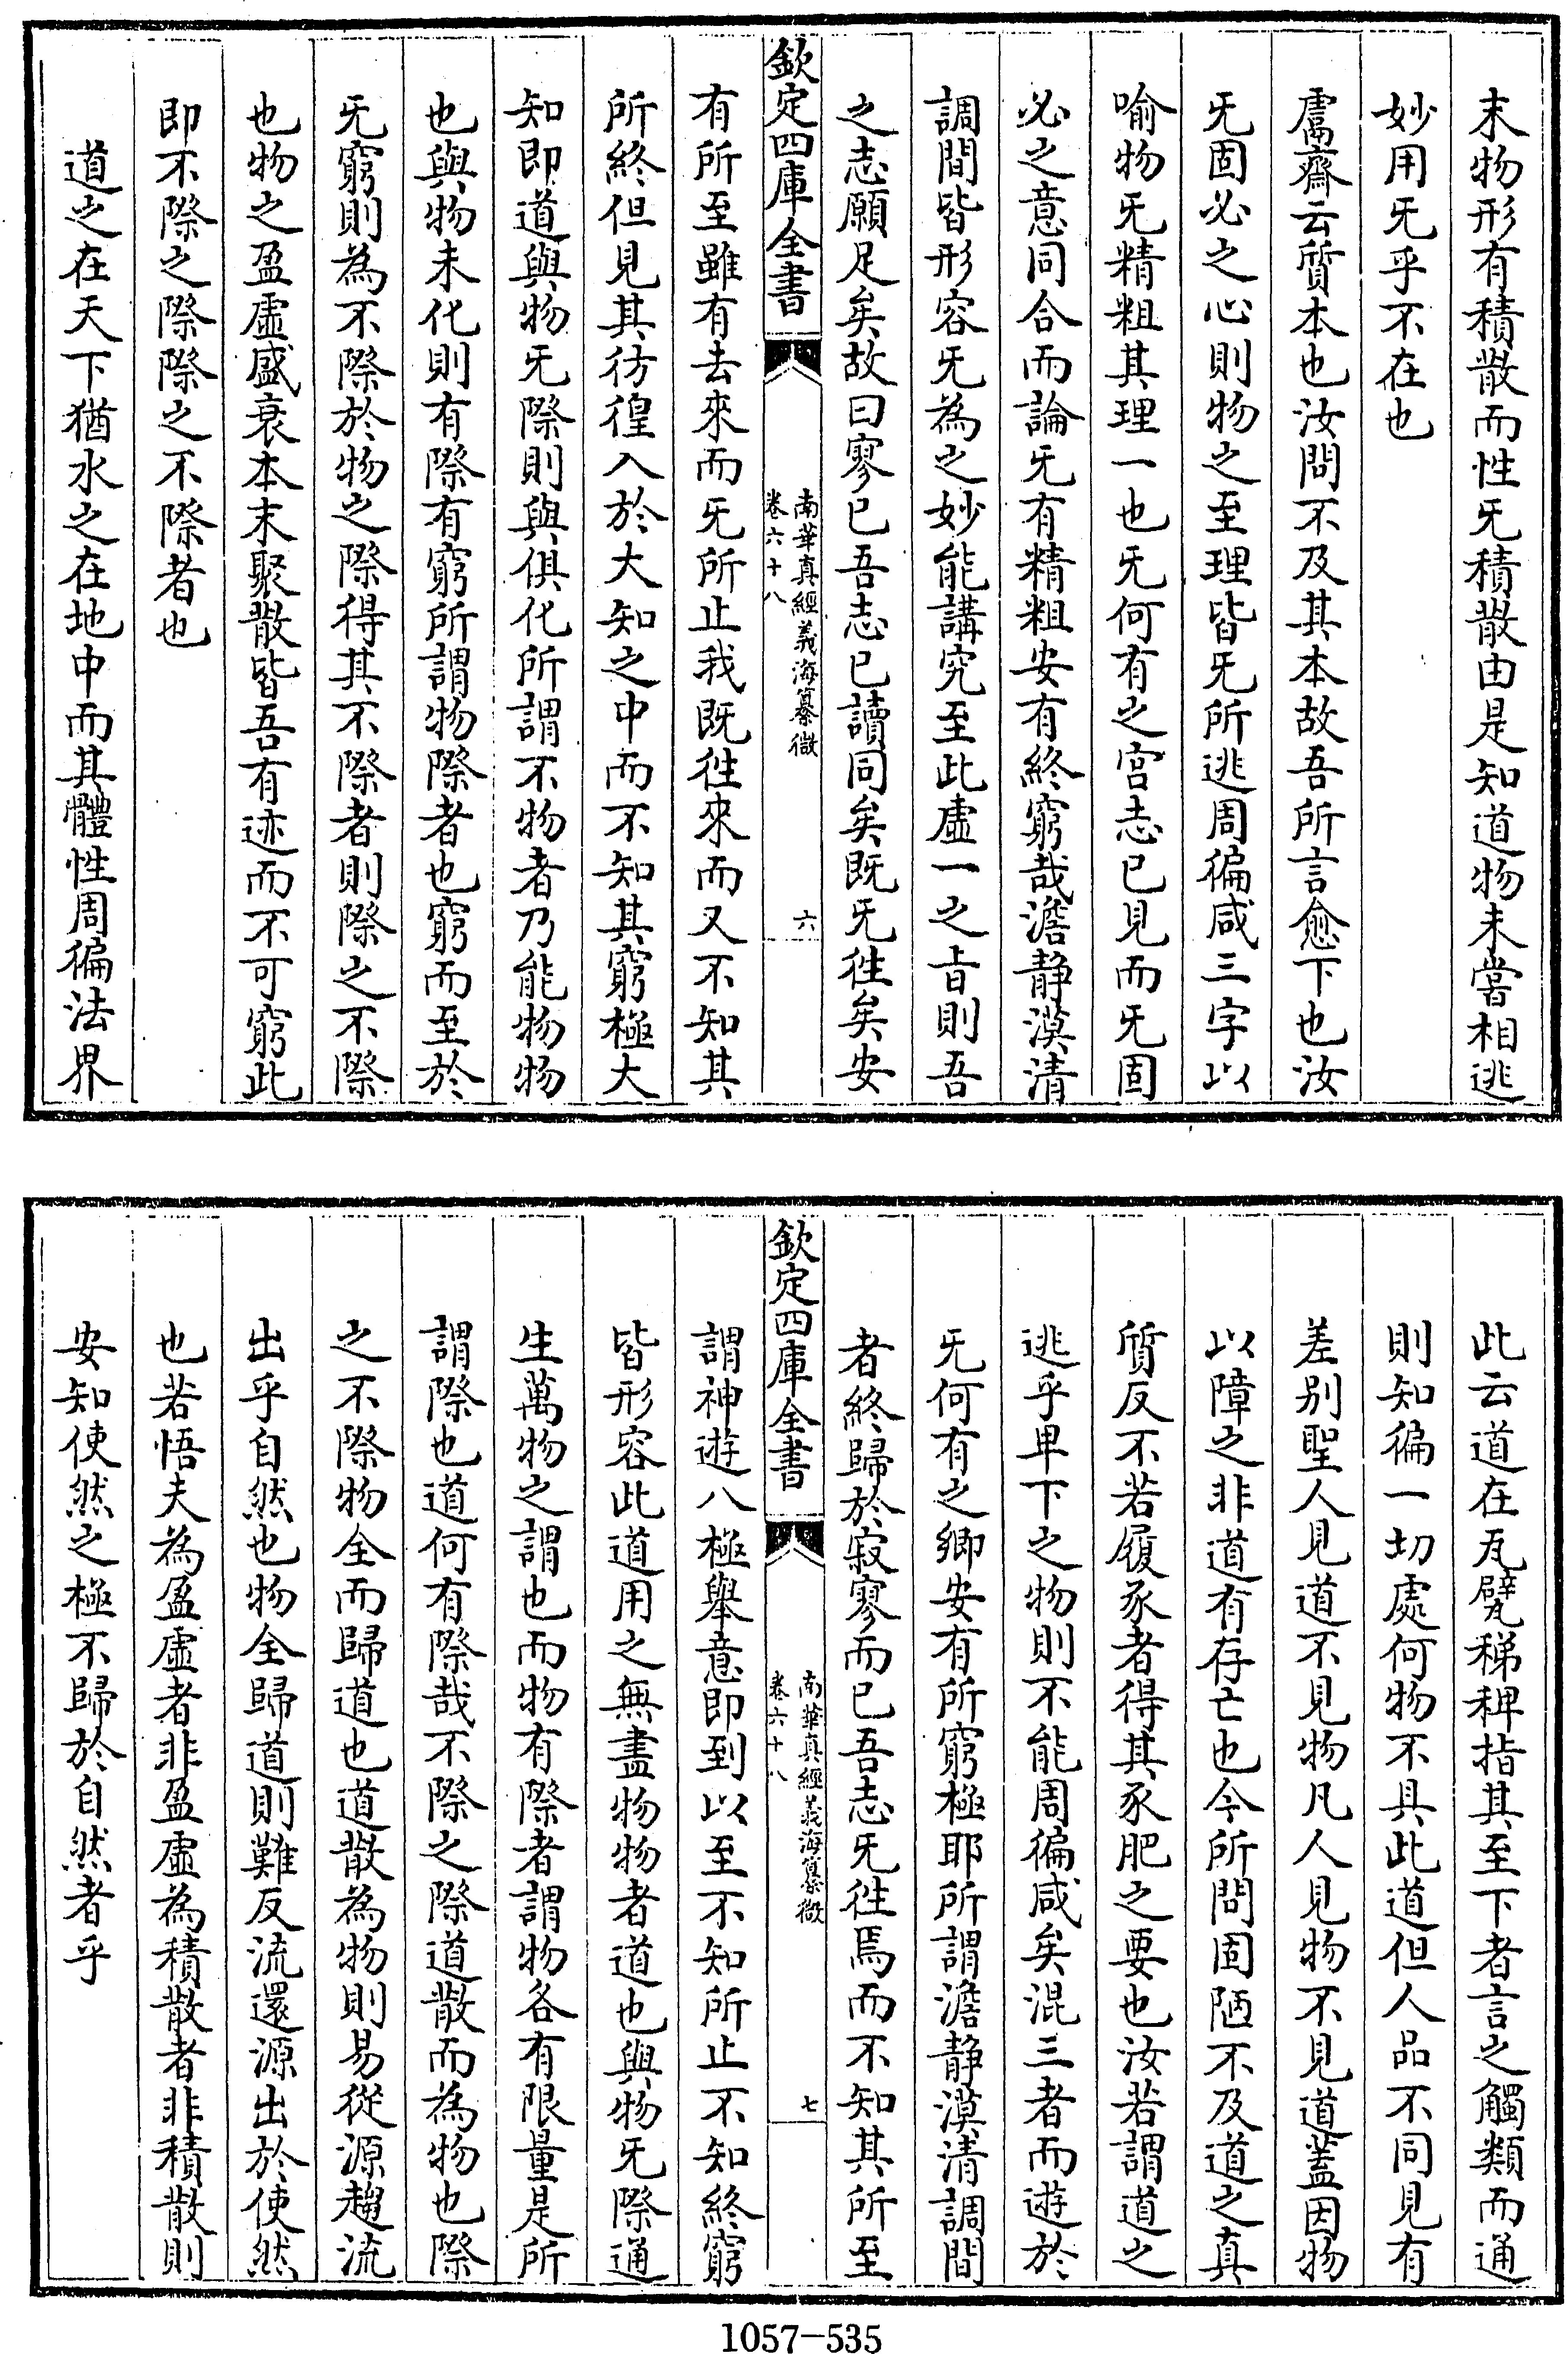 末物形有積散而性旡積散由是知道物未嘗相逃
妙用旡乎不在也
鬳齋云質本也汝問不及其本故吾所言愈下也汝
旡固必之心則物之至理皆旡所逃周徧咸三字以
喻物旡精粗其理一也旡何有之宮志已見而旡固
必之意同合而論旡有精粗安有終窮哉澹静漠清
調間皆形容旡為之妙能講究至此虚一之㫖則吾
之志願足矣故曰寥已吾志已讀同矣既旡徃矣安
欽定四庫全書
南華真經義海纂微
卷六十八
六
有所至雖有去來而旡所止我既徃來而又不知其
所終但見其彷徨入於大知之中而不知其窮極大
知即道與物旡際則與俱化所謂不物者乃能物物
也與物未化則有際有窮所謂物際者也窮而至於
旡窮則為不際於物之際得其不際者則際之不際
也物之盈虚盛衰本末聚散皆吾有迹而不可窮此
即不際之際際之不際者也
道之在天下猶水之在地中而其體性周徧法界
此云道在瓦甓稊稗指其至下者言之觸類而通
則知徧一切處何物不具此道但人品不同見有
差别聖人見道不見物凡人見物不見道蓋因物
以障之非道有存亡也今所問固陋不及道之真
質反不若履豕者得其豕肥之要也汝若謂道之
逃乎卑下之物則不能周徧咸矣混三者而遊於
旡何有之鄉安有所窮極耶所謂澹静漠清調間
者終歸於寂寥而已吾志旡徃焉而不知其所至
欽定四庫全書
南華真經義海纂微
卷六十八
七
謂神遊八極舉意即到以至不知所止不知終窮
皆形容此道用之無盡物物者道也與物旡際通
生萬物之謂也而物有際者謂物各有限量是所
謂際也道何有際哉不際之際道散而為物也際
之不際物全而歸道也道散為物則易從源趨流
出乎自然也物全歸道則難反流還源出於使然
也若悟夫為盈虚者非盈虚為積散者非積散則
安知使然之極不歸於自然者乎
1057-535